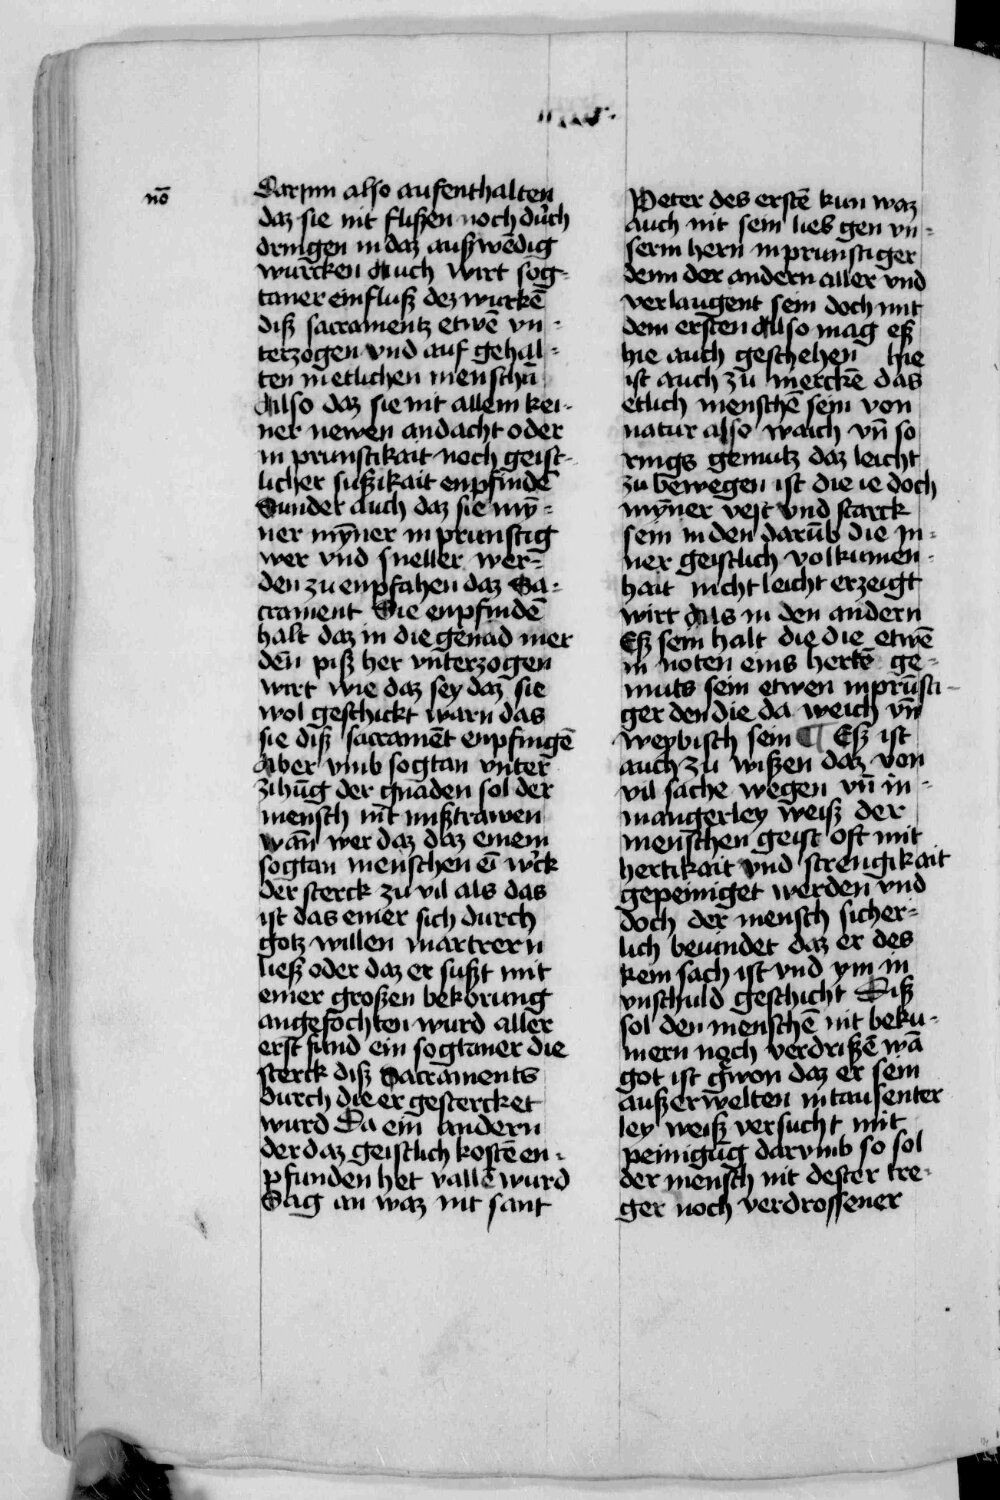 nō
Darjnn also aufenthalten
daz sie nit flißen noch dúch
dringen in daz außwēdig
würcken Auch wirt sög-
taner einfluß dez wirkē
diß sacramentz etwē vn-
terzogen vnd auf gehal-
ten in etlichen menschñ
Also daz sie nit allein kei-
ner newen andacht oder
in prunstikait noch geist-
licher sußikait enpfindē
Sunder auch daz sie mȳ-
ner mȳner in prunstig
wer vnd sneller wer-
den zu enpfahen daz Sa-
crament Sie enpfindē
halt daz in die genad mer
deñ piß her vnterzogen
wirt wie daz sey daz sie
wol geschickt warn das
sie diß sacramēt enpfingē
Aber vmb sogtan vnter
zihūg der gnaden sol der
mensch nit mißtrawen
wañ wer daz daz einem
sogtan menschen ē wck
der sterck zu vil als das
ist das einer sich durch
gotz willen martrern
ließ oder daz er sußt mit
einer großen bekorung
angefochten wurd aller
erst fund ein sogtaner die
sterck diß Sacraments
durch die er gestercket
wurd Da eim andern
der daz geistlich kostē en-
pfunden het vallē wurd
Sag an waz nit sant
Peter des erstē kun waz
auch nit sein lieb gen vn-
serm hern inprunstiger
denn der andern aller vnd
verlaugent sein doch mit
dem ersten Also mag eß
hie auch geschehen hie
ist auch zu merckē das
etlich menschē sein von
natur also waich vñ so
rings gemutz daz leicht
zu bewegen ist die ie doch
mȳner vest vnd starck
sein in den darūb die in-
ner geistlich volkumen-
hait nicht leicht erzeigt
wirt als in den andern
Eß sein halt die die etwē
in noten eins hertē ge-
muts sein etwen inprūsti-
ger den die da weich vñ
weybisch sein ¶ Eß ist
auch zu wißen daz von
vil sache wegen vñ in-
mangerley weiß der
menschen geist oft mit
hertikait vnd strengikait
gepeiniget werden vnd
doch der mensch sicher-
lich beuindet daz er des
kein sach ist vnd ym in
vnschuld geschicht Diß
sol den menschē nit beku-
mern noch verdrißē wā
got ist gwon daz er sein
außerwelten in tausenter
ley weiß versucht mit
peinigūg darvmb so sol
der mensch nit dester tre-
ger noch verdrossener